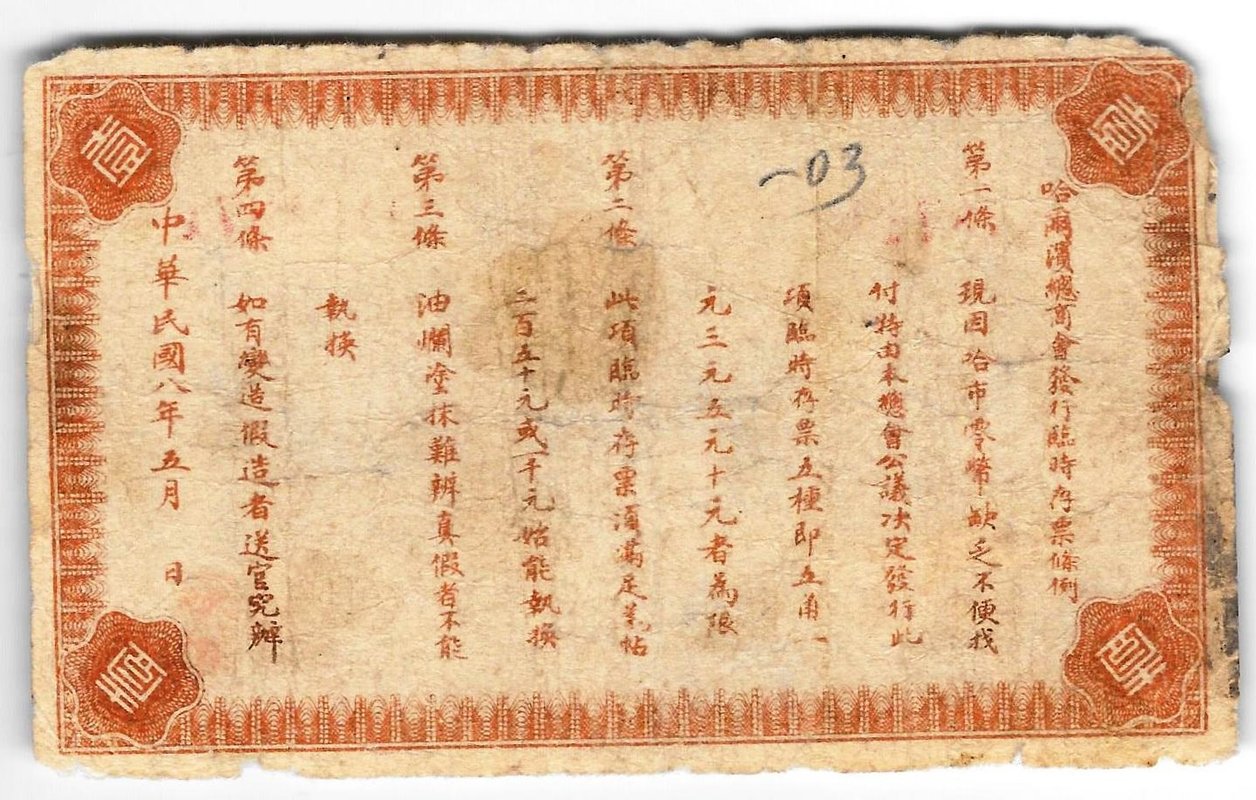 哈爾濱總商會發行臨時存票條例
第一條 現因哈市零幣缺乏不便找
付特由本總會公議決定發行此
項臨時存票五種即五角一
元三元五元十元者為限
第二條 此項臨時存票須滿足羌帖
二百五十元或一千元始能執換
第三條 油爛塗抹難辨真假者不能
執換
第四條 如有變造假造者送官究辦
中華民國八年五月 日
壹
壹
壹
壹
-03